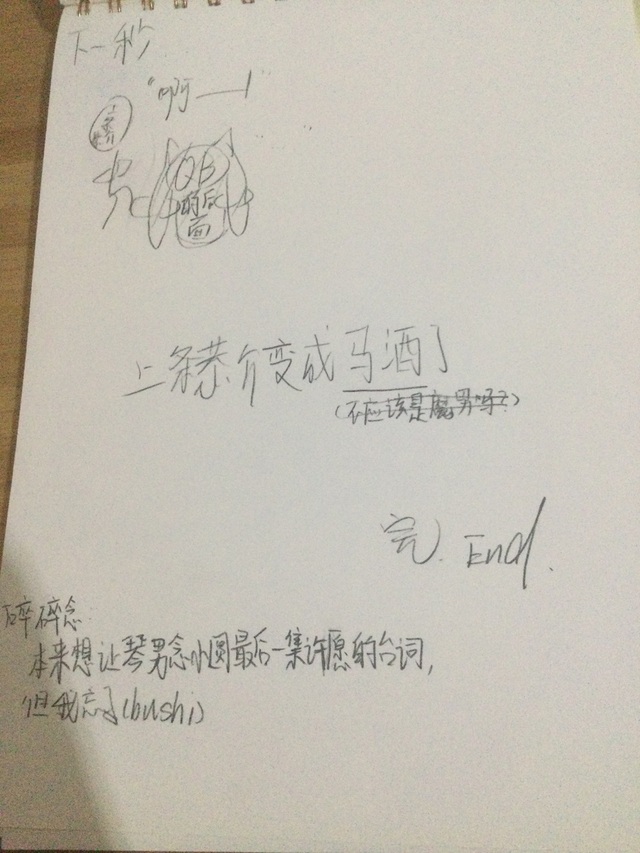 下一秒
"啊——!
QB
的反
面
上条恭介变成马酒了
(不应该是魔男吗?)
完. End.
碎碎念
本来想让琴男念小圆最后一集许愿的台词,
但我忘了(bushi)